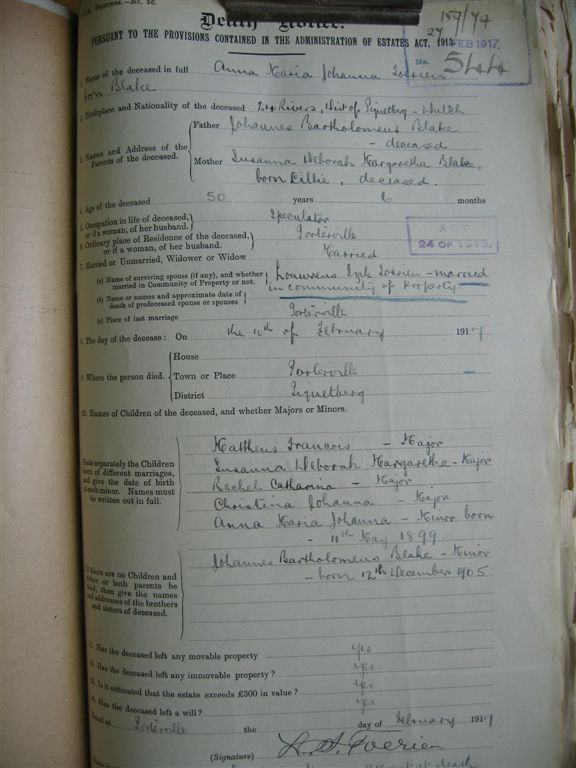 Death Notice.
PURSUANT TO THE PROVISIONS CONTAINED IN THE ADMINISTRATION OF ESTATES ACT, 1913.
FEB 1917
No. 544
1. Name of the deceased in full Anna Maria Johanna Toerien
born Blake
2. Birthplace and Nationality of the deceased 24 Rivers, Dist of Piquetberg - Dutch
3. Names and Address of the Parents of the deceased.
Father Johannes Bartholomeus Blake
- deceased
Mother Susanna Deborah Margaretha Blake
born Lillie, deceased.
4. Age of the deceased 50 years 6 months
5. Occupation in life of deceased, or if a woman, of her husband. Speculator
6. Ordinary place of Residence of the deceased, or if a woman, of her husband. Porterville
ACT
24 OF 1913.
7. Married or Unmarried, Widower or Widow Married
(a) Name of surviving spouse (if any), and whether married in Community of Property or not. Toerien - married
in community of Property
(b) Name or names and approximate date of death of predeceased spouse or spouses
(c) Place of last marriage Porterville
8. The day of the decease: On the 11th of February 1917
9. Where the person died.
House
Town or Place Porterville
District Piquetberg
10. Names of Children of the deceased, and whether Majors or Minors.
separately the Children
born of different marriages,
and give the date of birth
of each minor. Names must
be written out in full.
Mattheus Francois - Major
Susanna Deborah Margaretha - Major
Rachel Catharina - Major
Christina Johanna - Major
Anna Maria Johanna - Minor born
- 11th May 1899
Johannes Bartholomeus Blake - Minor
- born 12th December 1905
If there are no Children and
either or both parents be
dead, then give the names
and addresses of the brothers
and sisters of deceased.
11. Has the deceased left any movable property yes
12. Has the deceased left any immovable property? yes
13. Is it estimated that the estate exceeds £300 in value? yes
14. Has the deceased left a will? yes
Dated at Porterville the day of February 1917
(Signature) Toerien